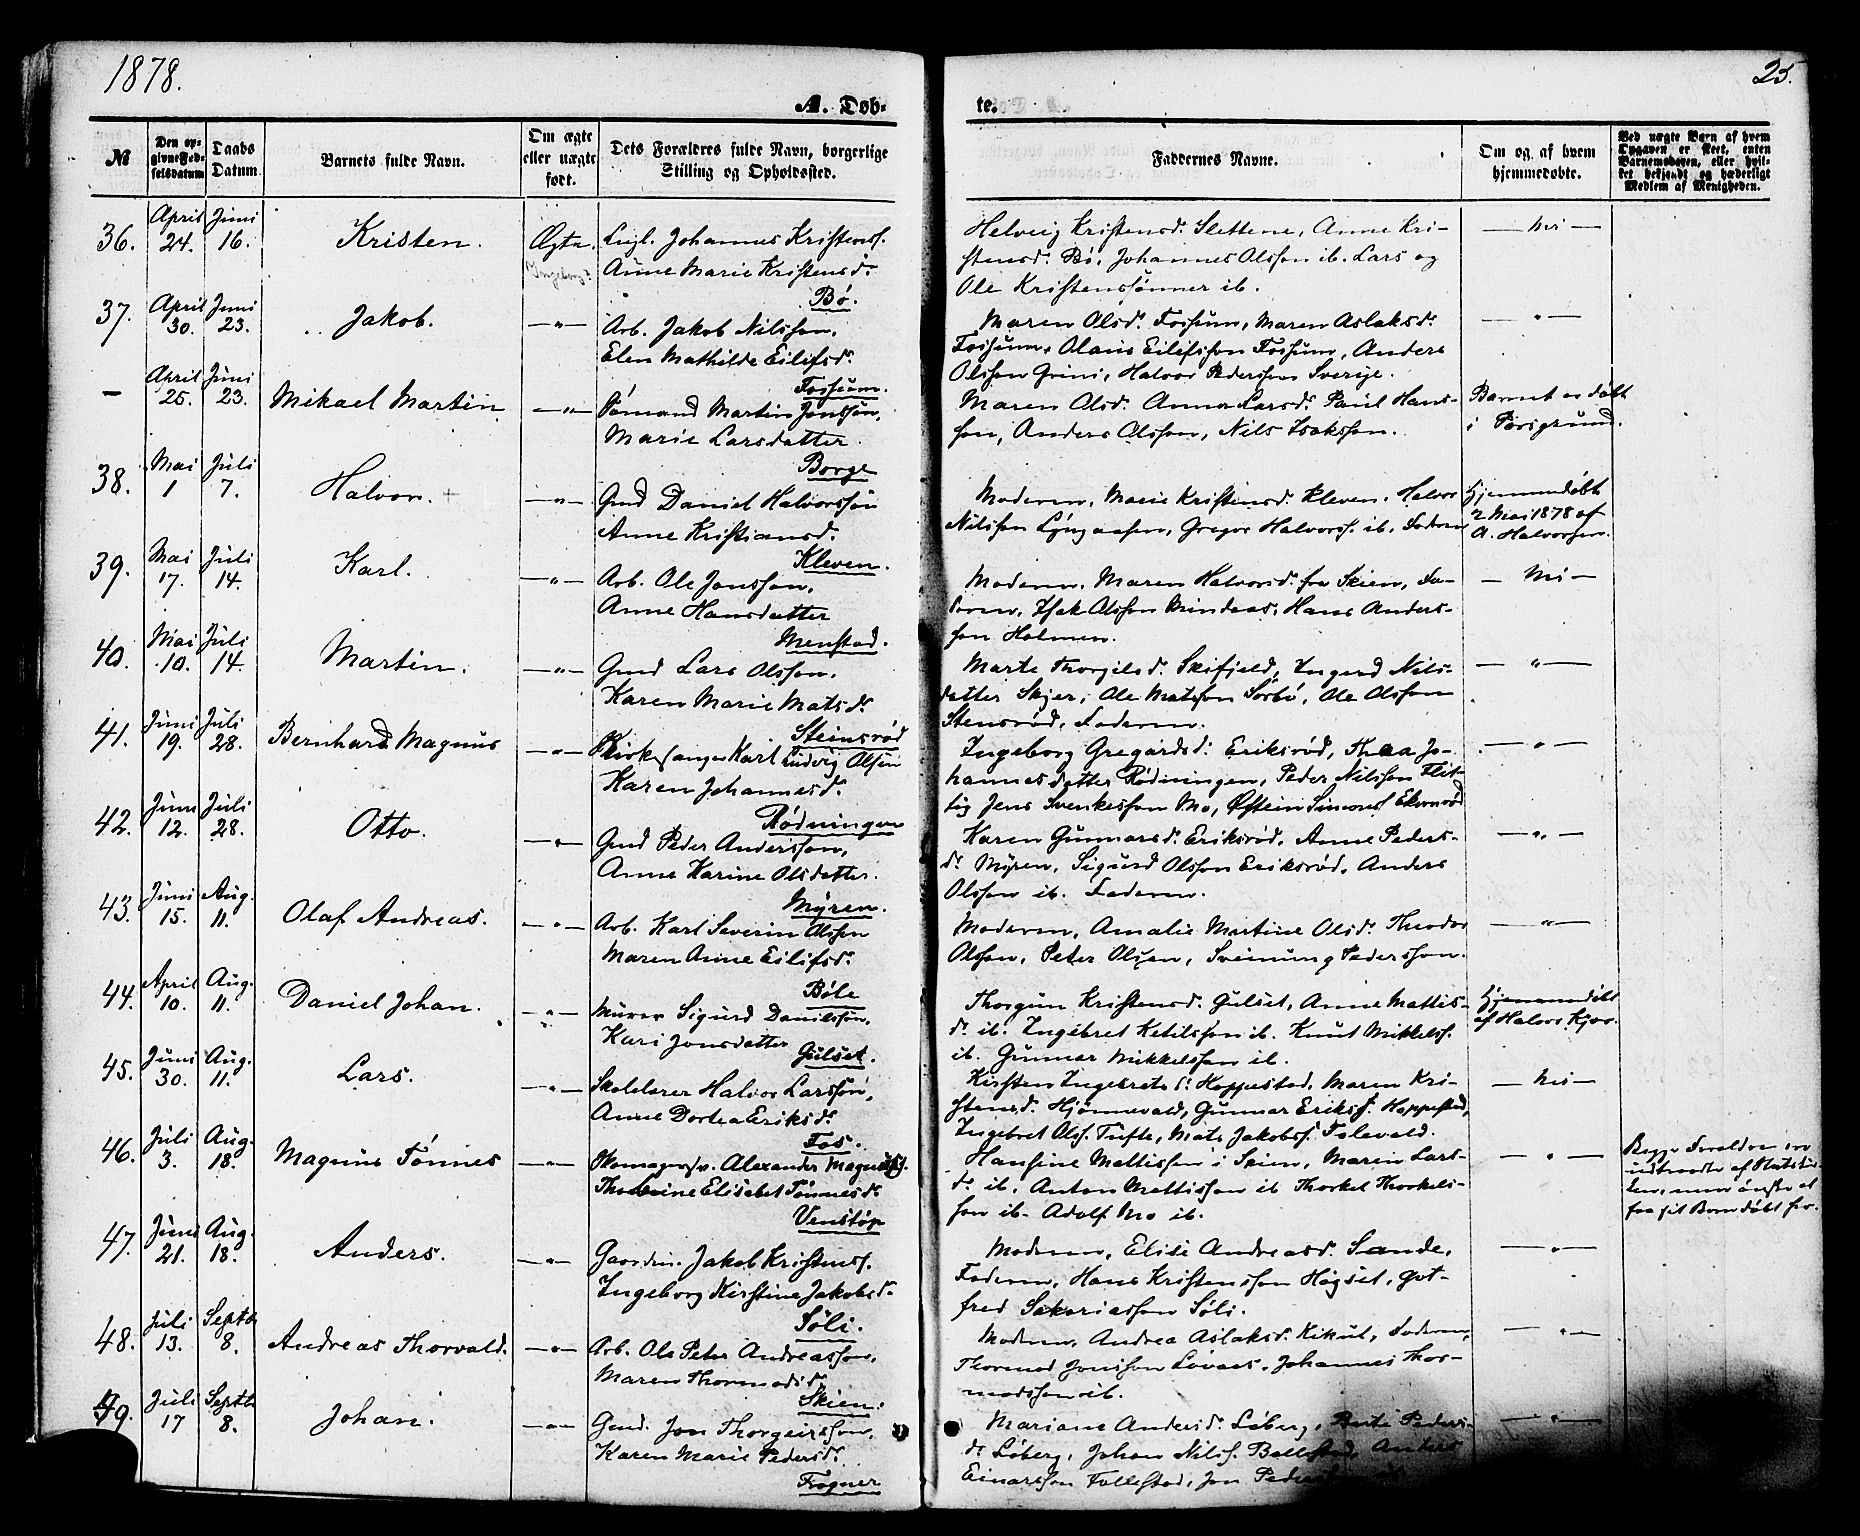 1878.
25.
A. Døb-
te.
№
Den op-
givne Fød-
selsdatum
Daabs
Datum.
Barnets fulde Navn.
Om ægte
eller uægte
født.
Dets Forældres fulde Navn, borgerlige
Stilling og Opholdssted.
Faddernes Navne.
Om og af hvem
hjemmedøbte.
Ved uægte Barn af hvem
Opgaven er skeet, enten
Barnemoderen, eller hvil-
ket bekjendt og hæderligt
Medlem af Menigheden.
36. April 24. Juni 16. Kristen. Ægte.
Johannes Kristenss.
Anne Marie Kristensd.
Bø.
Helveig Kristensd. Slettene, Anne Kri-
stensd. Bø, Johannes Olsson ib. Lars og
Ole Kristenssønner ib.
— nei —
37. April 30. Juni 23. Jakob. —"—
Arb. Jakob Nilsson.
Elen Mathilde Eilifsd.
Fossum.
Maren Olsd. Fossum, Maren Aslaksd.
Fossum, Olaus Eilifsson Fossum, Anders
Olsson Grini, Halvor Pedersson Sverige.
—"—
— April 25. Juni 23. Mikael Martin —"—
Sømand Martin Jonsson,
Marie Larsdatter.
Borge
Maren Olsd. Anne Larsd. Paul Hans-
son, Anders Olsson, Nils Isaksson.
Barnet er døbt
i Porsgrund.
38. Mai 1 Juli 7. Halvor. —"—
Gmd Daniel Halvorsson
Anne Kristiansd.
Kleven.
Moderen, Marie Kristensd. Kleven, Halvor
Nilsson Lyngaasen, Gregor Halvorss. ib. Faderen
Hjemmedøbt
2 Mai 1878 af
A. Halvorsen.
39. Mai 17. Juli 14. Karl. —"—
Arb. Ole Jonsson,
Anne Hansdatter
Menstad.
Moderen, Maren Halvorsd. fra Skien, Fa-
deren, Isak Olsson Mindaas, Hans Anders-
son Holmen.
— nei —
40. Mai 10. Juli 14. Martin. —"—
Gmd Lars Olsson.
Karen Marie Matsd.
Steinsrød
Marte Thorgilsd. Skifjeld, Ingerd Nils-
datter Skjer, Ole Matsson Sørbø, Ole Olsson
Stensrød, Faderen.
—"—
41. Juni 19. Juli 28. Bernhard Magnus —"—
Kirkesanger Karl Ludvig Olsen
Karen Johannesd.
Rødningen
Ingeborg Gregardsd. Eriksrød, Thea Jo-
hannesdatter Rødningen, Peder Nilsson Flit-
tig Jens Svenkesson Mo, Øistein Simons.
—"—
42. Juni 12. Juli 28. Otto. —"—
Gmd Peder Andersson,
Anne Karine Olsdatter.
Myren.
Karen Gunnarsd. Eriksrød, Anne Peders-
d. Myren, Sigurd Olsson Eriksrød, Anders
Olsson ib. Faderen.
—"—
43. Juni 15. Aug. 11. Olaf Andreas. —"—
Arb. Karl Severin Olsson
Maren Anne Eilifsd.
Bøle
Moderen, Amalie Martine Olsd. Theodor
Olsson, Peter Olsen, Sveinung Pedersson.
—"—
44. April 10. Aug. 11. Daniel Johan. —"—
Murer Sigurd Danielsson,
Kari Jonsdatter
Gulset.
Thorgun Kristensd. Gulset, Anne Mattis-
d. ib. Ingebret Ketilsson ib. Knut Mikkelss.
ib. Gunnar Mikkelsson ib.
Hjemmedøbt
af Halvor Kjær.
45. Juni 30. Aug. 11. Lars. —"—
Skolelærer Halvor Larsson,
Anne Dortea Eriksd.
Fos.
Kirsten Ingebretsd. Hoppestad, Maren Kri-
stensd. Hjømevald, Gunnar Erikss. Hoppestad,
Ingebret Olss. Tufte, Mats Jakobss. Folevald.
— nei —
46. Juli 3. Aug. 18. Magnus Tønnes —"—
Skomagersv. Alexander Magnuss.
Elisabet Tønnesd.
Venstøp
Hansine Mattissen i Skien, Maren Lars-
d. ib. Anton Mattisson ib Thorkel Thorkels-
son ib. Adolf Mo ib.
—"—
Begge Forældre er
udtraadte af Statskir-
ken, men ønsker at
faa sit Barn døbt
47. Juni 21. Aug. 18. Anders. —"—
Gaardm. Jakob Kristenss.
Ingeborg Kirstine Jakobsd.
Søli.
Moderen, Elise Andreasd. Sande,
Faderen, Hans Kristensson Høgset, Got-
fred Sakariasson Søli.
—"—
48. Juli 13. Septb 8. Andreas Thorvald. —"—
Arb. Ole Peter Andreasson,
Maren Thormodsd.
Skien.
Moderen, Andrea Aslaksd. Kikut, Faderen,
Thormod Jonsson Løvaas, Johannes Thor-
modsson ib.
—"—
49. Juli 17 Septb 8. Johan. —"—
Gmd. Jon Thorgeirsson,
Karen Marie Pedersd.
Frogner
Mariane Andersd. Løberg, Berte Peders-
d. Løberg, Johan Nilss. Bollestad, Anders
Einarsson Follestad, Jon
—"—